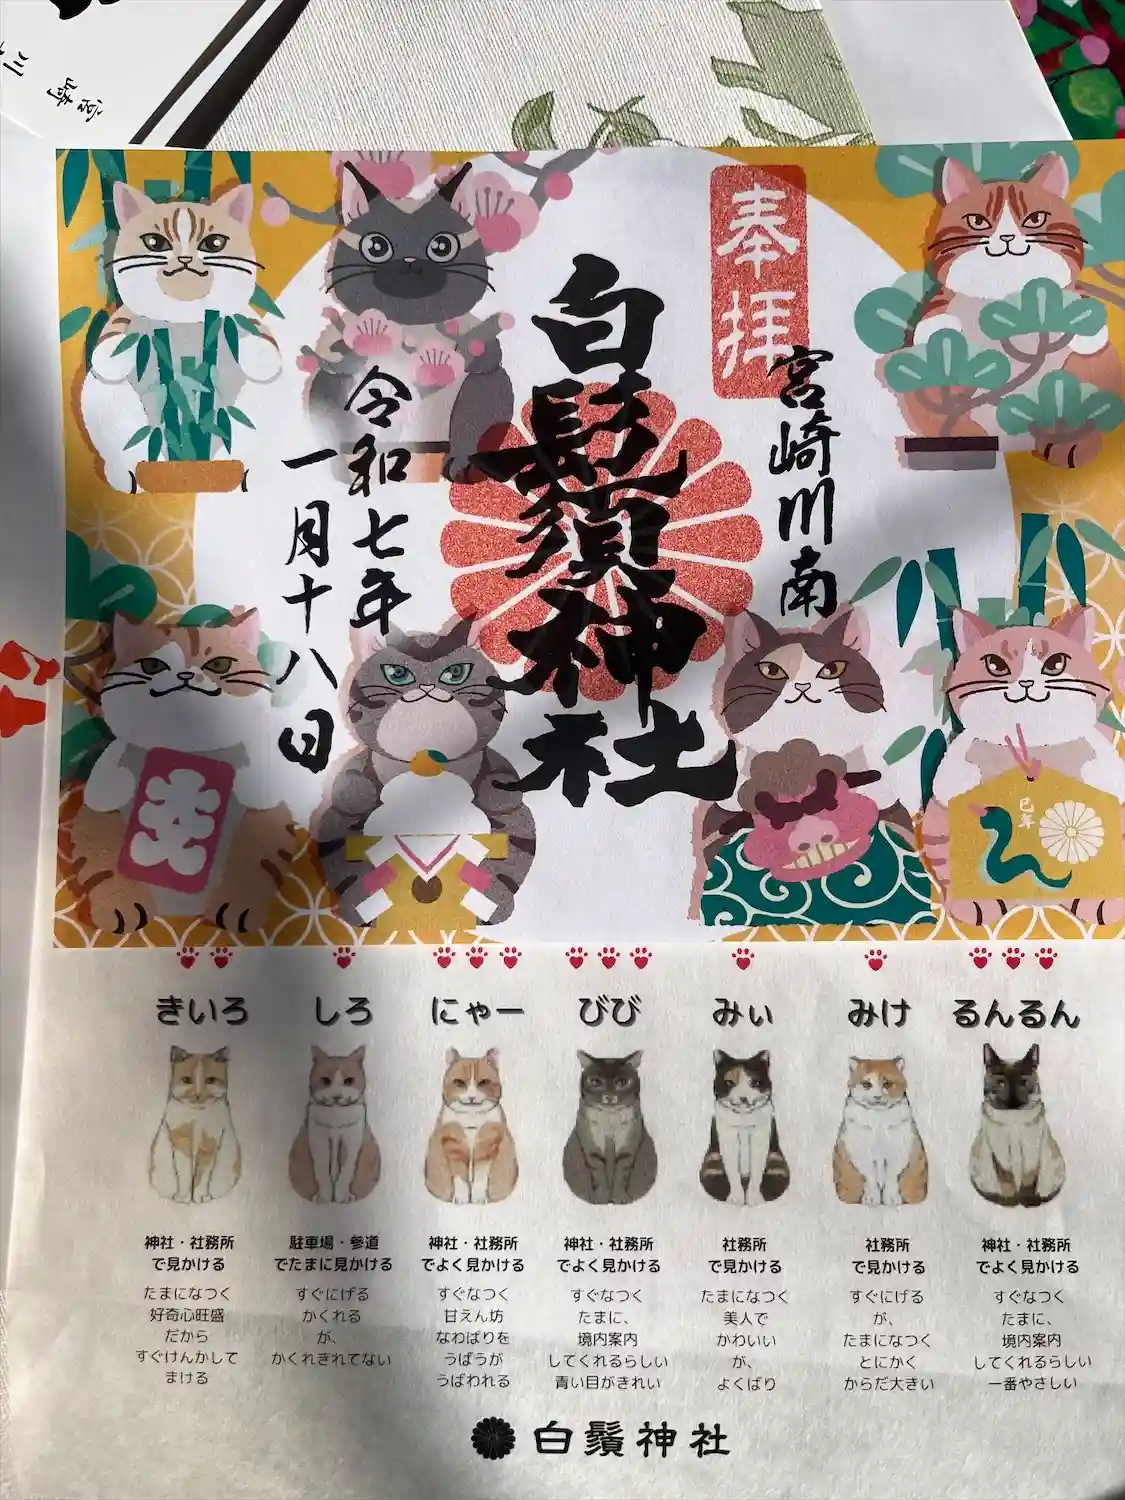 川
崎
宮
奉拝
宮崎川南
白鬚神社
令和七年
一月十八日
巳年
きいろ
神社・社務所
で見かける
たまになつく
好奇心旺盛
だから
すぐけんかして
まける
しろ
駐車場・参道
でたまに見かける
すぐにげる
かくれる
が、
かくれきれてない
にゃー
神社・社務所
でよく見かける
すぐなつく
甘えん坊
なわばりを
うばうが
うばわれる
びび
神社・社務所
でよく見かける
すぐなつく
たまに、
境内案内
してくれるらしい
青い目がきれい
みぃ
社務所
で見かける
たまになつく
美人で
かわいい
が、
よくばり
みけ
社務所
で見かける
すぐにげる
が、
たまになつく
とにかく
からだ大きい
るんるん
神社・社務所
でよく見かける
すぐなつく
たまに、
境内案内
してくれるらしい
一番やさしい
白鬚神社